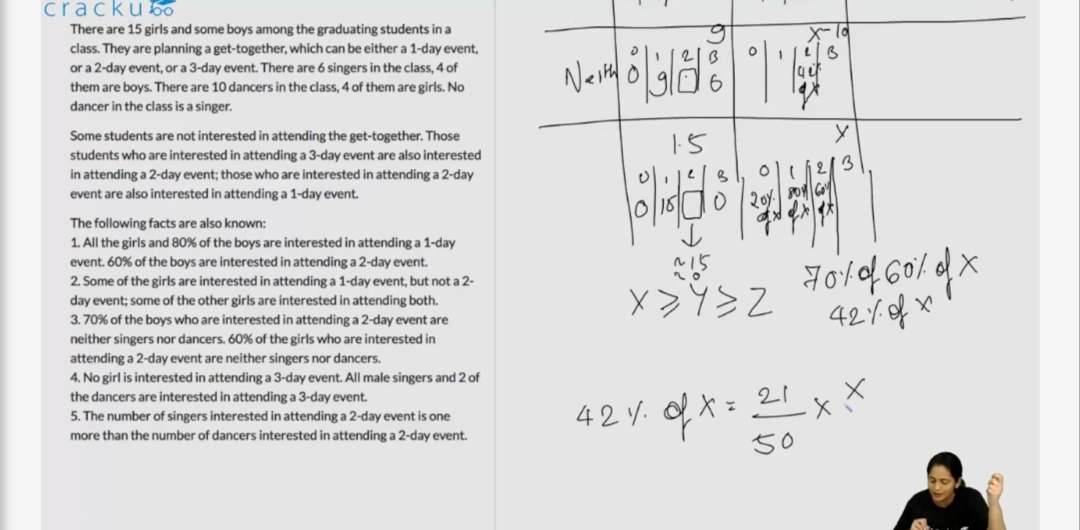 cracku
There are 15 girls and some boys among the graduating students in a
class. They are planning a get-together, which can be either a 1-day event,
or a 2-day event, or a 3-day event. There are 6 singers in the class, 4 of
them are boys. There are 10 dancers in the class, 4 of them are girls. No
dancer in the class is a singer.
Some students are not interested in attending the get-together. Those
students who are interested in attending a 3-day event are also interested
in attending a 2-day event; those who are interested in attending a 2-day
event are also interested in attending a 1-day event.
The following facts are also known:
1. All the girls and 80% of the boys are interested in attending a 1-day
event. 60% of the boys are interested in attending a 2-day event.
2. Some of the girls are interested in attending a 1-day event, but not a 2-
day event; some of the other girls are interested in attending both.
3. 70% of the boys who are interested in attending a 2-day event are
neither singers nor dancers. 60% of the girls who are interested in
attending a 2-day event are neither singers nor dancers.
4. No girl is interested in attending a 3-day event. All male singers and 2 of
the dancers are interested in attending a 3-day event.
5. The number of singers interested in attending a 2-day event is one
more than the number of dancers interested in attending a 2-day event.
9 X-10
0 1 2 3 0 1 2 3
Neith 0 9
15 X
0 1 2 3 0 1 2 3
0 15 0 20% of x 80% of x 60% of x
~15
~0
X ≥ Y ≥ Z
70% of 60% of X
42% of x
42% of x = 21/50 x x